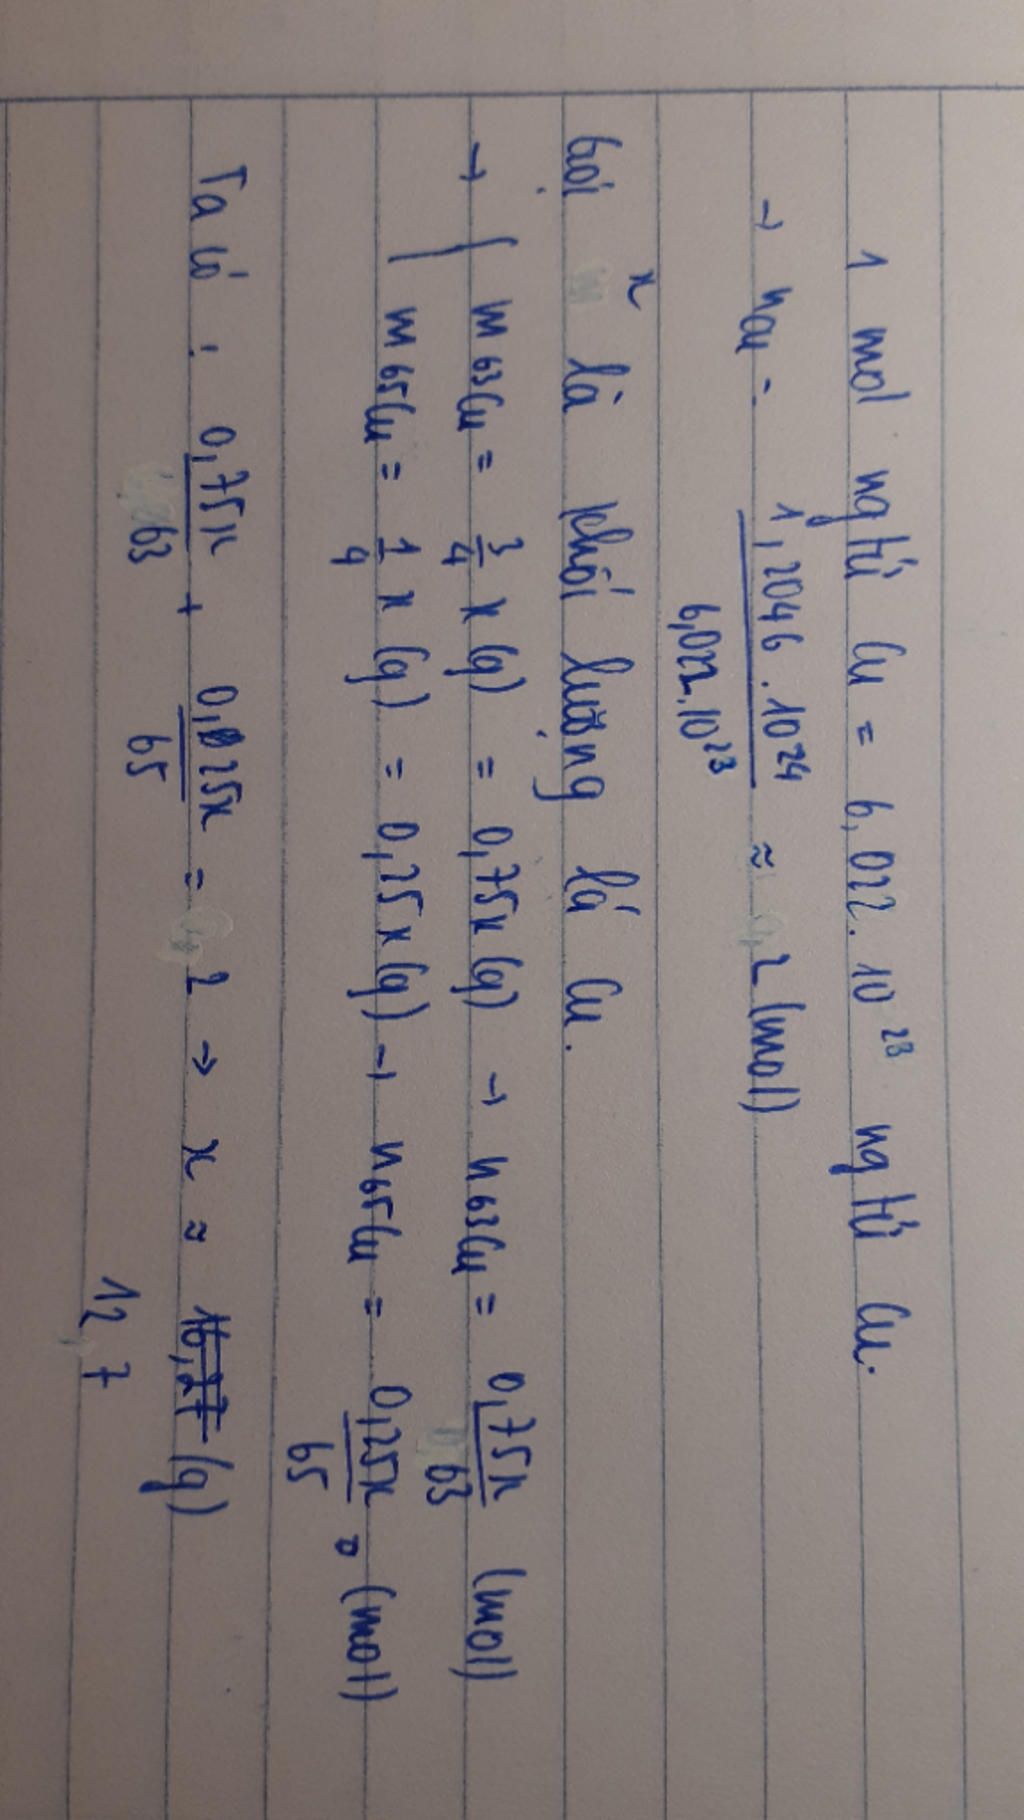 1 mol ng tử Cu = 6,022. 10²³ ng tử Cu.
→ nCu = 1,2046 . 10²⁴ / 6,022. 10²³ ≈ 2 (mol)
Gọi x là khối lượng lá Cu.
→ { m 63Cu = 3/4 x (g) = 0,75x (g) → n63Cu = 0,75x / 63 (mol)
m 65Cu = 1/4 x (g) = 0,25x (g) → n65Cu = 0,25x / 65 (mol)
Ta có : 0,75x / 63 + 0,25x / 65 = 2 → x ≈ 16,27 (g)
12,7